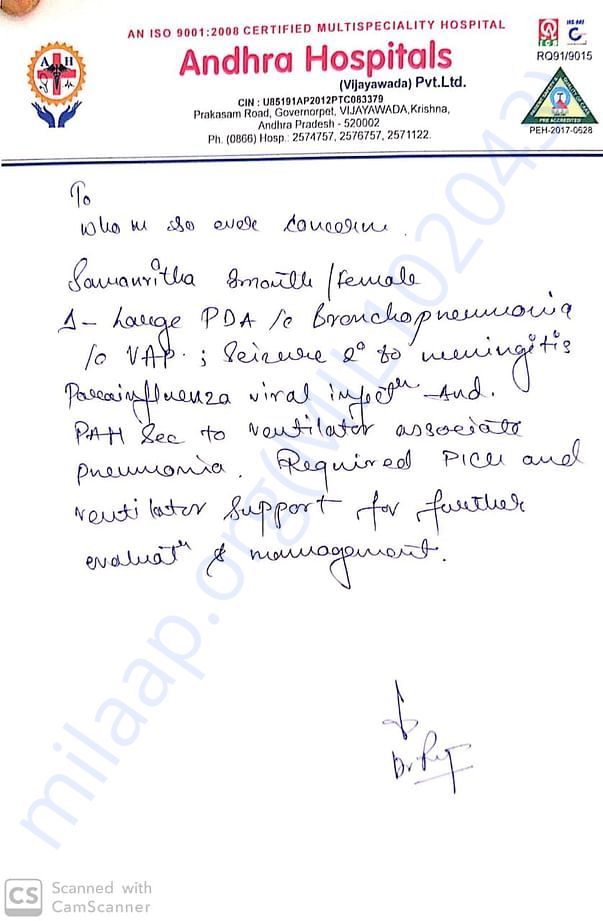 AN ISO 9001:2008 CERTIFIED MULTISPECIALITY HOSPITAL
Andhra Hospitals
(Vijayawada) Pvt.Ltd.
CIN : U85191AP2012PTC083379
Prakasam Road, Governorpet, VIJAYAWADA,Krishna,
Andhra Pradesh - 520002
Ph. (0866) Hosp.: 2574757, 2576757, 2571122.
A H
RQ91/9015
PRE ACCREDITED
PEH-2017-0628
To
whom so ever concern.
Samanvitha 3month/Female
Large PDA /c Bronchopneumonia
/c VAP. ; Seizure 2° to meningitis
Parainfluenza viral infectn And.
PAH Sec to ventilator associate
pneumonia. Required PICU and
ventilator support for further
evaluatn & management.
milaap.org(MIL102043)
CS Scanned with
CamScanner